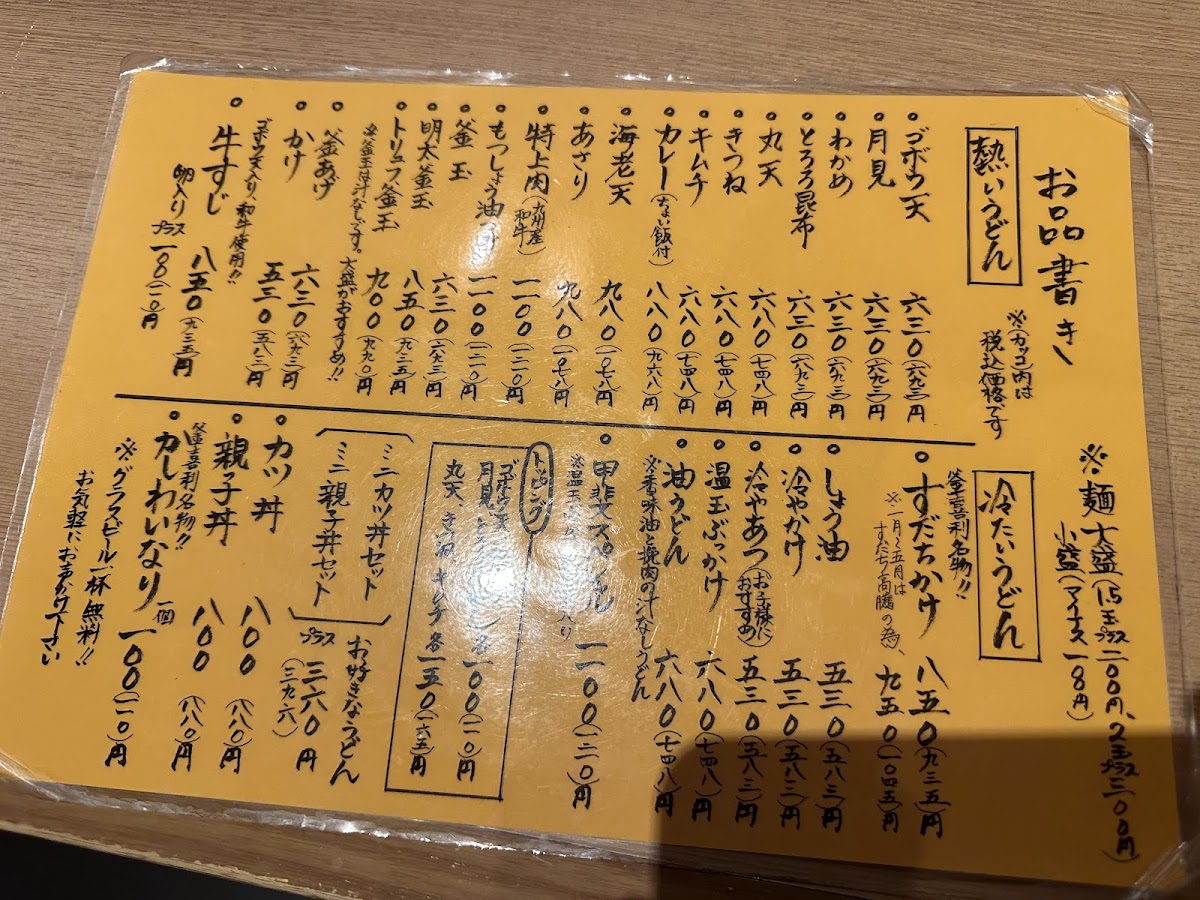 お品書き
※(カッコ)内は
税込価格です
熱いうどん
ゴボウ天 六三〇(六九三)円
月見 六三〇(六九三)円
わかめ 六三〇(六九三)円
とろろ昆布 六三〇(六九三)円
丸天 六八〇(七四八)円
きつね 六八〇(七四八)円
キムチ 六八〇(七四八)円
カレー(ちょい飯付) 八八〇(九六八)円
海老天 九八〇(一〇七八)円
あさり 九八〇(一〇七八)円
特上肉(九州産和牛) 一一〇〇(一二一〇)円
もつしょう油 一一〇〇(一二一〇)円
釜玉 六三〇(六九三)円
明太釜玉 八五〇(九三五)円
トリュフ釜玉 九〇〇(九九〇)円
※釜玉は汁なしです。大盛がおすすめ!!
釜あげ 六三〇(六九三)円
かけ 五三〇(五八三)円
ゴボウ天入り、和牛使用!!
牛すじ 八五〇(九三五)円
卵入り プラス一〇〇(一一〇)円
※麺大盛(1.5玉プラス二〇〇円、2玉プラス三〇〇円)
小盛(マイナス一〇〇円)
冷たいうどん
釜喜利名物!!
すだちかけ 八五〇(九三五)円
※一月〜五月はすだち高騰の為、 九五〇(一〇四五)円
しょう油 五三〇(五八三)円
冷やかけ 五三〇(五八三)円
冷やあつ(お子様におすすめ) 五三〇(五八三)円
温玉ぶっかけ 六八〇(七四八)円
油うどん 六八〇(七四八)円
※香味油と挽肉の汁なしうどん
甲斐スペシャル 一一〇〇(一二一〇)円
※温玉 入り
トッピング
ゴボウ天
月見、とろろ 各一〇〇(一一〇)円
丸天、きつね、キムチ 各一五〇(一六五)円
ミニカツ丼セット
ミニ親子丼セット
お好きなうどん
プラス三六〇円
(三九六)
カツ丼 八〇〇(八八〇)円
親子丼 八〇〇(八八〇)円
釜喜利名物!!
かしわいなり 一個 一〇〇(一一〇)円
※グラスビール一杯無料!!
お気軽にお声かけ下さい